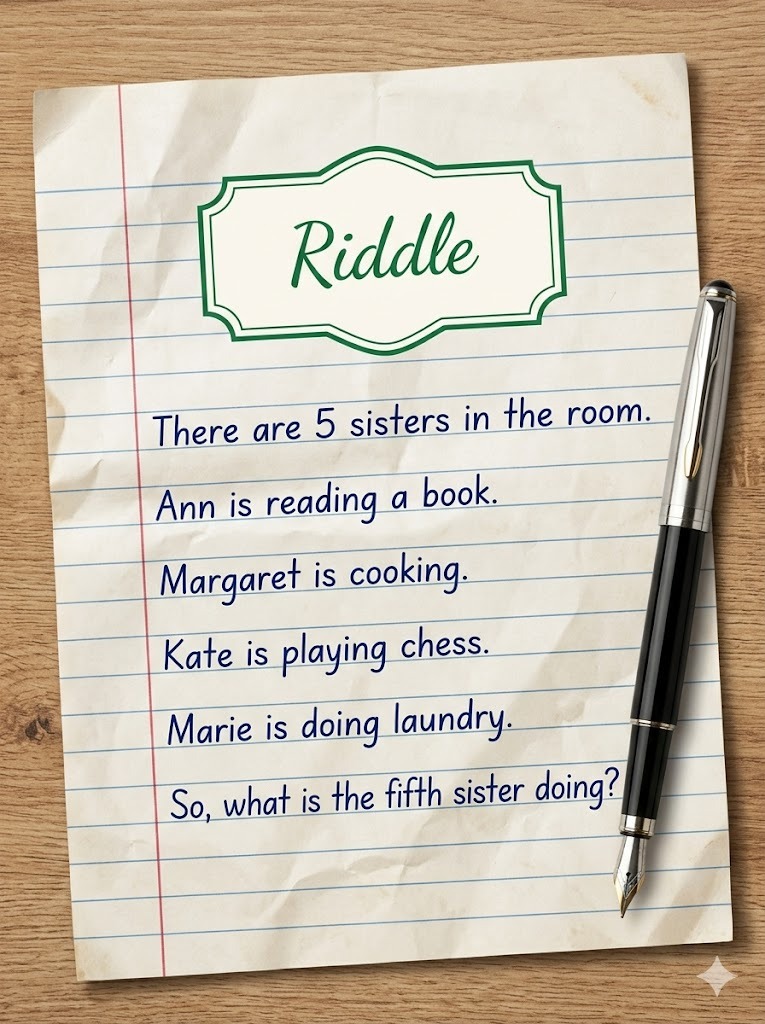 Riddle
There are 5 sisters in the room.
Ann is reading a book.
Margaret is cooking.
Kate is playing chess.
Marie is doing laundry.
So, what is the fifth sister doing?